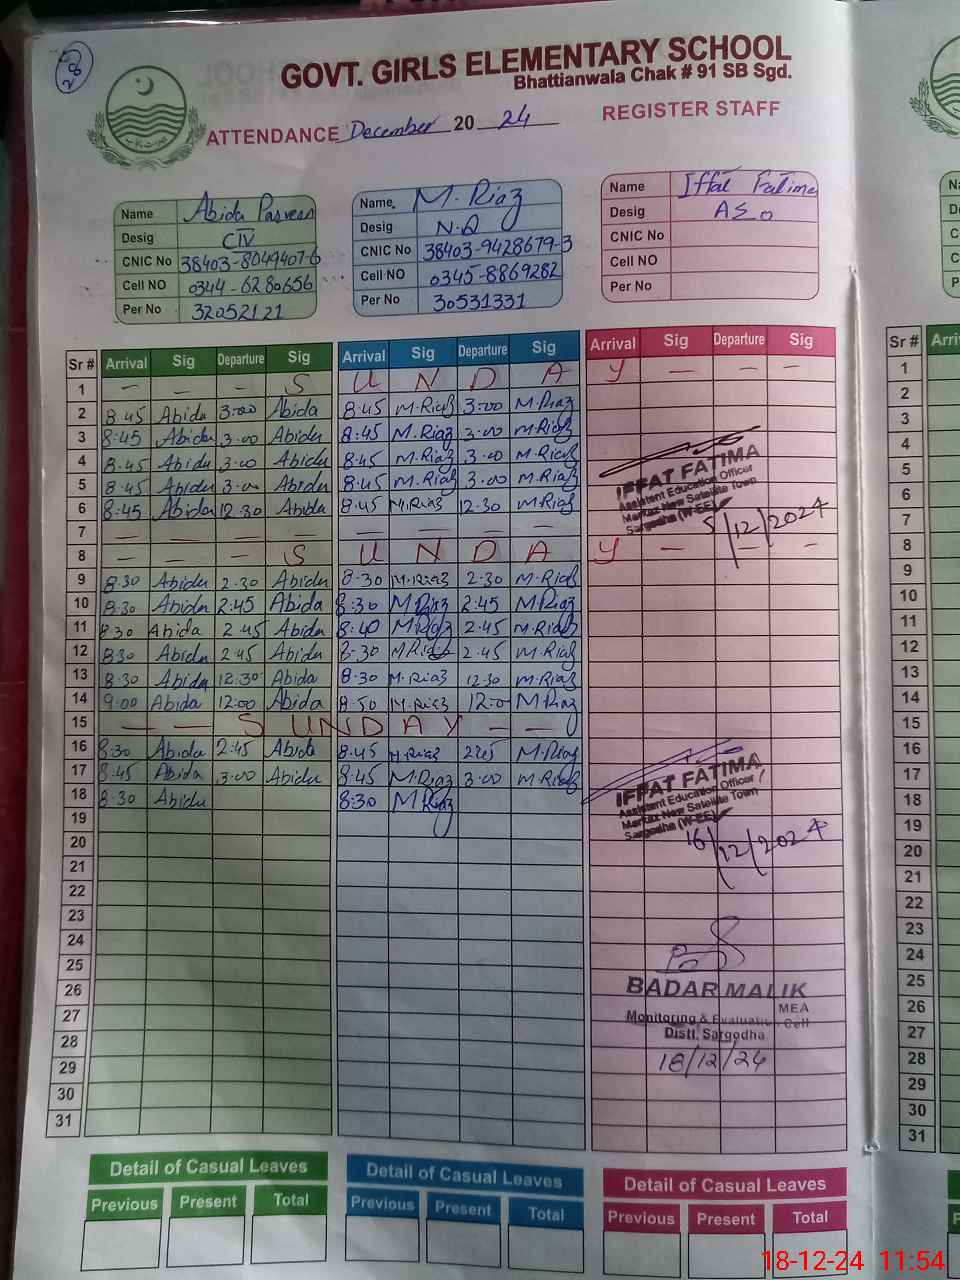 GOVT. GIRLS ELEMENTARY SCHOOL
Bhattianwala Chak # 91 SB Sgd.
ATTENDANCE December 20 24 REGISTER STAFF
Name Abida Parveen
Desig CIV
CNIC No 38403-8049407-6
Cell NO 0344-6280656
Per No 32052121
Name M. Riaz
Desig N.Q
CNIC No 38403-9428679-3
Cell NO 0345-8869282
Per No 30531331
Name Iffat Fatima
Desig AEO
CNIC No
Cell NO
Per No
Sr # Arrival Sig Departure Sig Arrival Sig Departure Sig Arrival Sig Departure Sig
1 – – – S U N D A Y – – –
2 8:45 Abida 3:00 Abida 8:45 M.Riaz 3:00 M.Riaz
3 8:45 Abida 3:00 Abida 8:45 M.Riaz 3:00 M.Riaz
4 8:45 Abida 3:00 Abida 8:45 M.Riaz 3:00 M.Riaz
5 8:45 Abida 3:00 Abida 8:45 M.Riaz 3:00 M.Riaz
6 8:45 Abida 12:30 Abida 8:45 M.Riaz 12:30 M.Riaz
7 – – – – – – – –
8 – – – S U N D A Y – – –
9 8:30 Abida 2:30 Abida 8:30 M.Riaz 2:30 M.Riaz
10 8:30 Abida 2:45 Abida 8:30 M.Riaz 2:45 M.Riaz
11 8:30 Abida 2:45 Abida 8:40 M.Riaz 2:45 M.Riaz
12 8:30 Abida 2:45 Abida 8:30 M.Riaz 2:45 M.Riaz
13 8:30 Abida 12:30 Abida 8:30 M.Riaz 12:30 M.Riaz
14 9:00 Abida 12:00 Abida 8:50 M.Riaz 12:0 M.Riaz
15 – – S U N D A Y – –
16 8:30 Abida 2:45 Abida 8:45 M.Riaz 2:45 M.Riaz
17 8:45 Abida 3:00 Abida 8:45 M.Riaz 3:00 M.Riaz
18 8:30 Abida 8:30 M.Riaz
19
20
21
22
23
24
25
26
27
28
29
30
31
IFFAT FATIMA
Assistant Education Officer
Markaz New Satelite Town
Sargodha (W-EE)
5/12/2024
IFFAT FATIMA
Assistant Education Officer
Markaz New Satelite Town
Sargodha (W-EE)
16/12/2024
BADAR MALIK
MEA
Monitoring & Evaluation Cell
Distt. Sargodha
16/12/24
Detail of Casual Leaves
Previous Present Total
Detail of Casual Leaves
Previous Present Total
Detail of Casual Leaves
Previous Present Total
Sr #
1
2
3
4
5
6
7
8
9
10
11
12
13
14
15
16
17
18
19
20
21
22
23
24
25
26
27
28
29
30
31
18-12-24 11:54